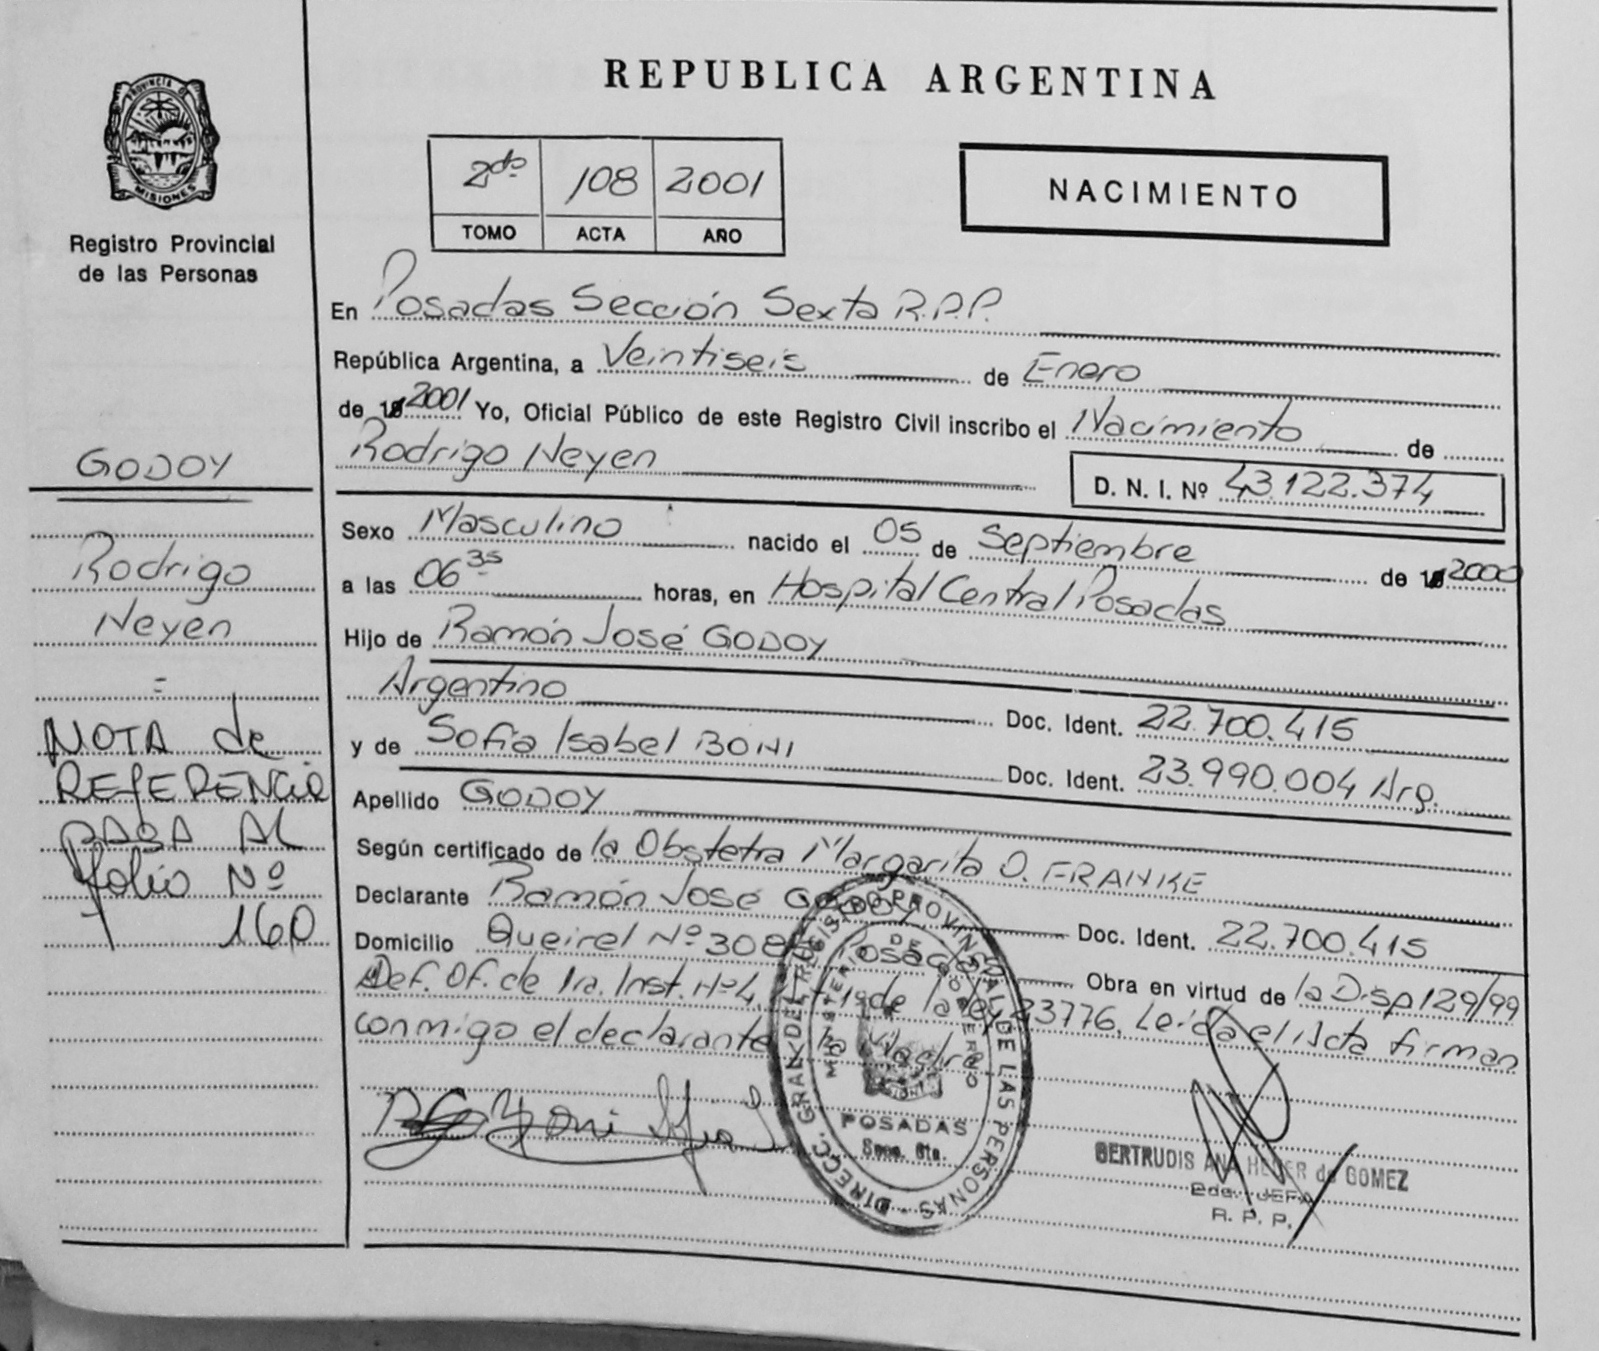 PROVINCIA DE
MISIONES
Registro Provincial
de las Personas
GODOY
Rodrigo
Neyen
=
NOTA de
REFERENCIA
PASA AL
folio Nº
160
REPUBLICA ARGENTINA
2do 108 2001
TOMO ACTA AÑO
NACIMIENTO
En Posadas Sección Sexta R.P.P.
República Argentina, a Veintiseis de Enero
de 19 2001 Yo, Oficial Público de este Registro Civil inscribo el Nacimiento de
Rodrigo Neyen D. N. I. Nº 43.122.374
Sexo Masculino nacido el 05 de Septiembre de 19 2000
a las 06 35 horas, en Hospital Central Posadas
Hijo de Ramón José GODOY
Argentino Doc. Ident. 22.700.415
y de Sofía Isabel BONI Doc. Ident. 23.990.004 Arg.
Apellido GODOY
Según certificado de la Obstetra Margarita O. FRANKE
Declarante Ramón José GODOY Doc. Ident. 22.700.415
Domicilio Queirel Nº 3085 Posadas Obra en virtud de la Disp 129/99
Def. Of. de 1ra. Inst. Nº4, de la ley 23776. Leída el Acta firman
conmigo el declarante la Madre
Boni Sofia
DIRECC. GRAL DEL REGISTRO PROVINCIAL DE LAS PERSONAS
MINISTERIO DE GOBIERNO
POSADAS
Secc. 6ta.
GERTRUDIS ANA HEDER de GOMEZ
2da. JEFA
R. P. P.